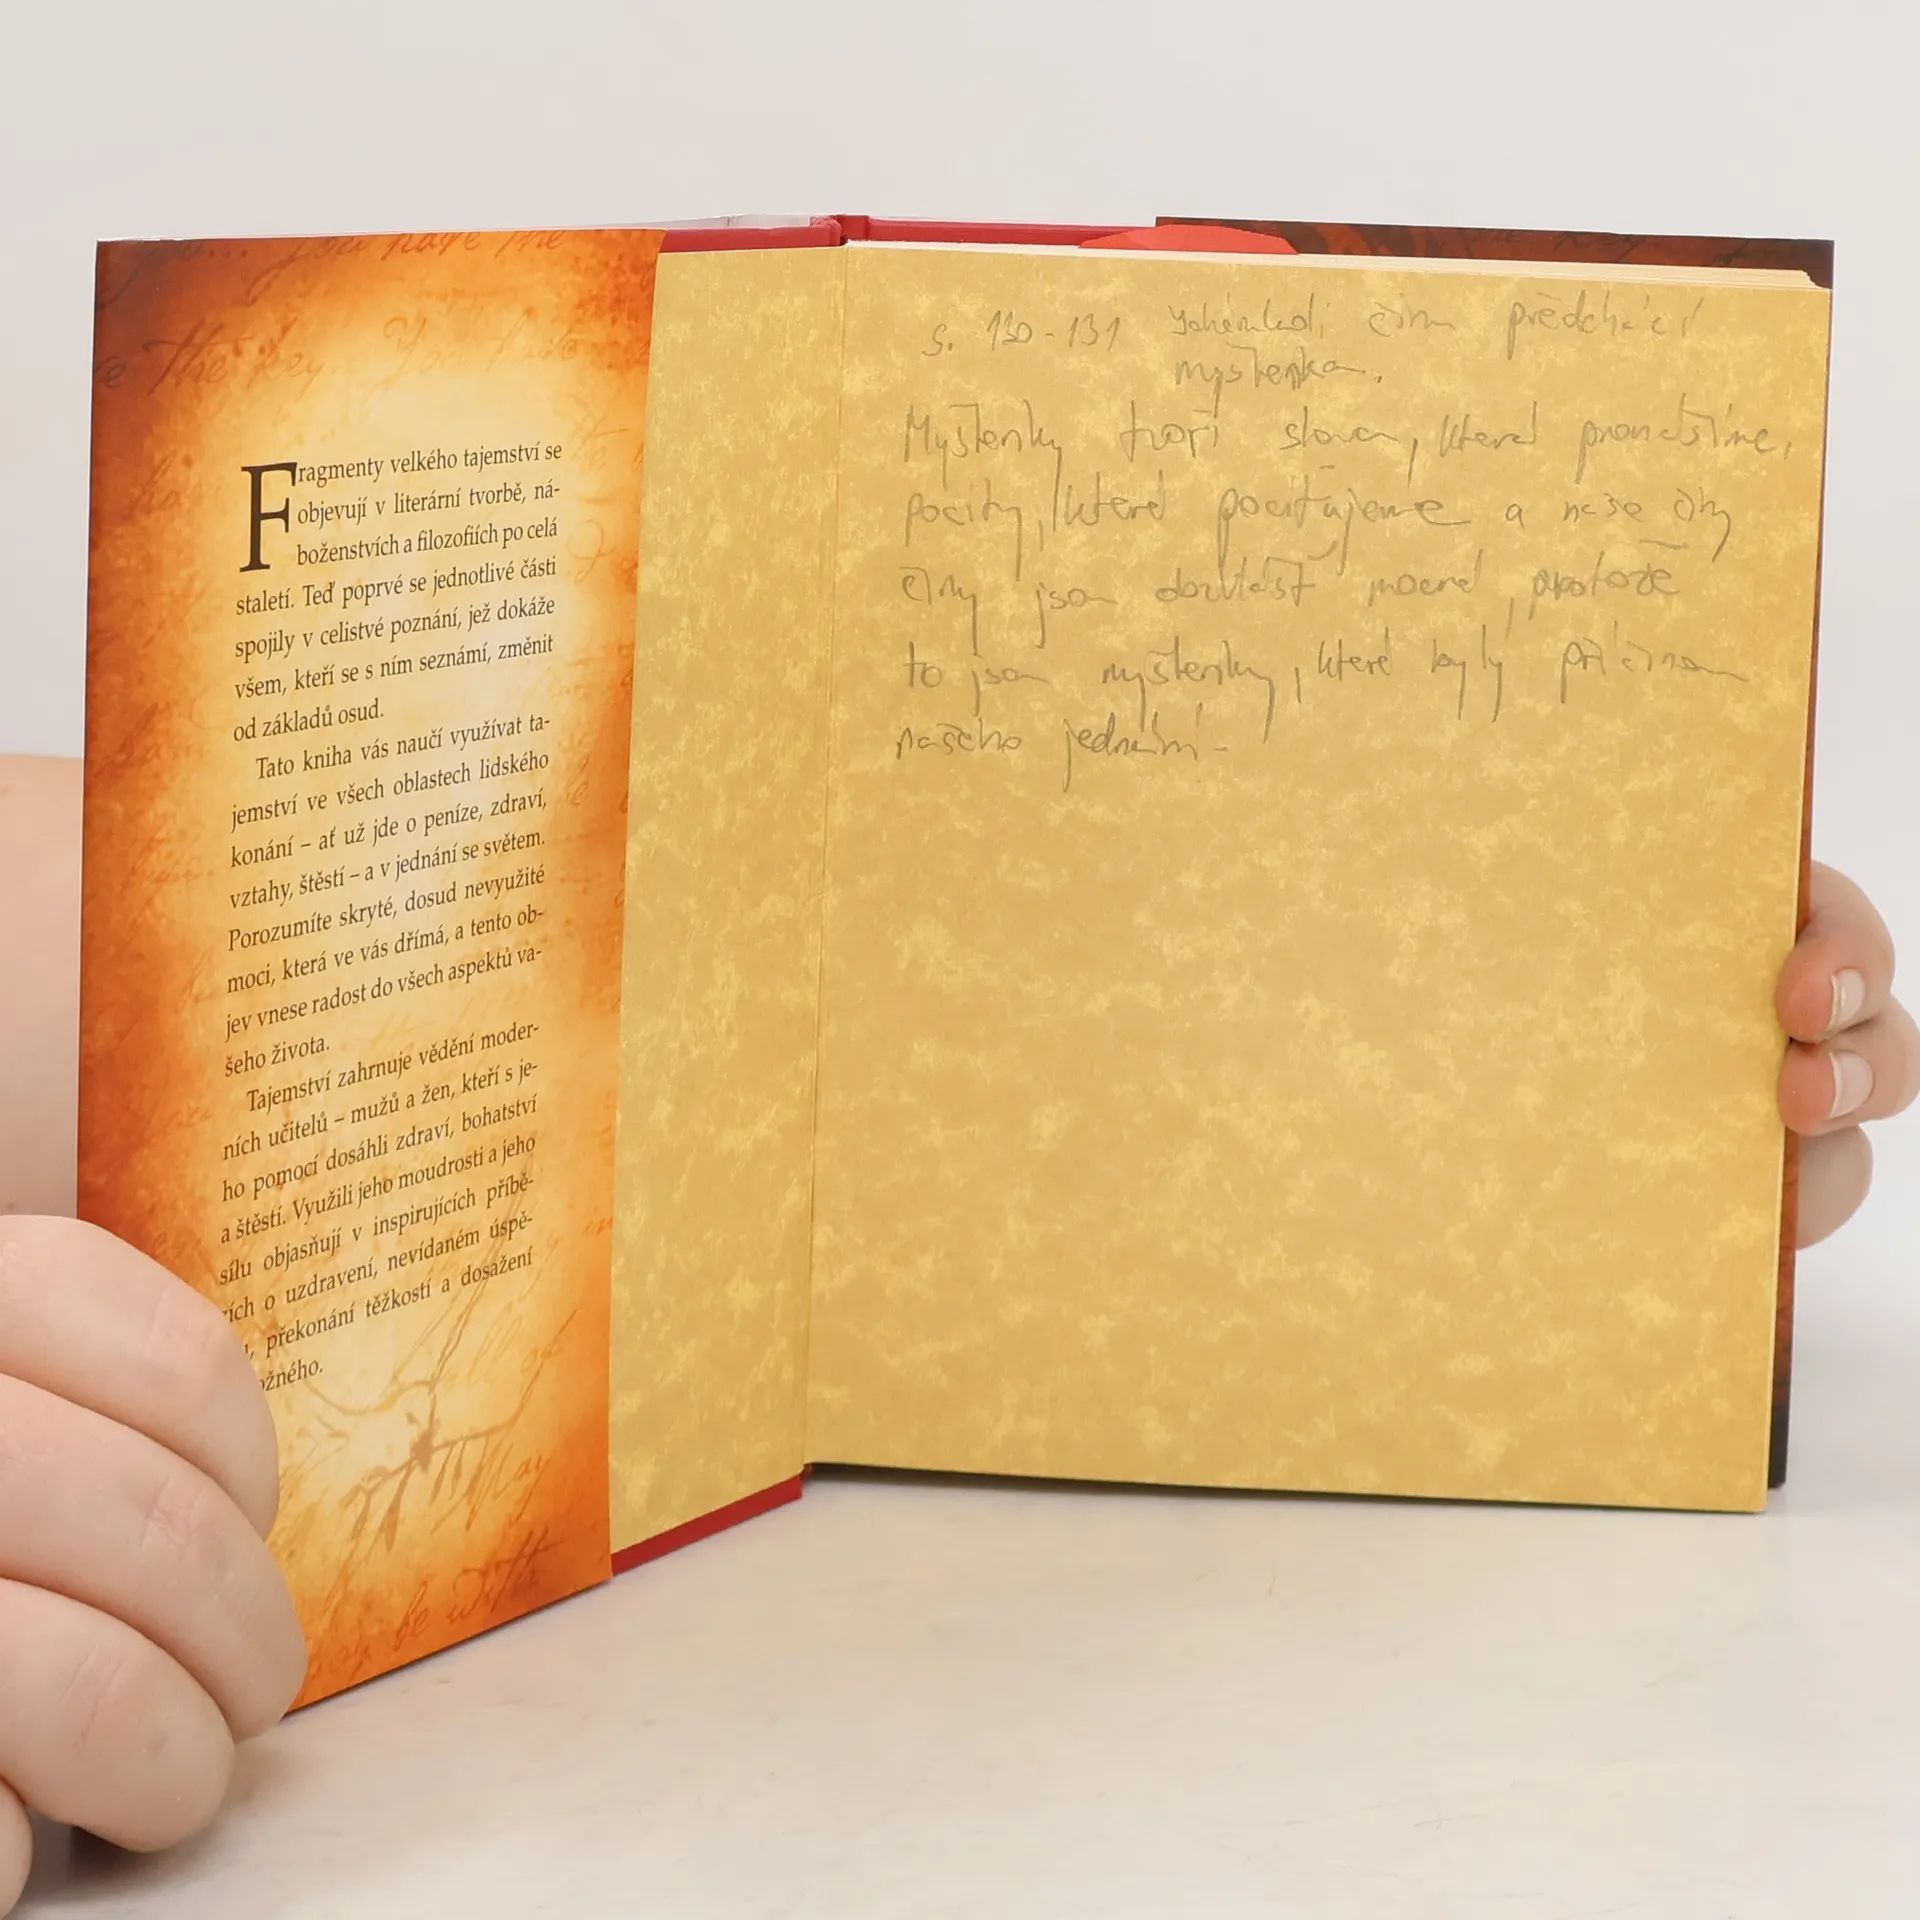 you have the
the key. You have
Fragmenty velkého tajemství se
objevují v literární tvorbě, ná-
boženstvích a filozofiích po celá
staletí. Teď poprvé se jednotlivé části
spojily v celistvé poznání, jež dokáže
všem, kteří se s ním seznámí, změnit
od základů osud.
Tato kniha vás naučí využívat ta-
jemství ve všech oblastech lidského
konání – ať už jde o peníze, zdraví,
vztahy, štěstí – a v jednání se světem.
Porozumíte skryté, dosud nevyužité
moci, která ve vás dřímá, a tento ob-
jev vnese radost do všech aspektů va-
šeho života.
Tajemství zahrnuje vědění moder-
ních učitelů – mužů a žen, kteří s je-
ho pomocí dosáhli zdraví, bohatství
a štěstí. Využili jeho moudrosti a jeho
sílu objasňují v inspirujících příbě-
zích o uzdravení, nevídaném úspě-
, překonání těžkostí a dosažení
ožného.
May
be with
s. 130-131 činu předchází
myšlenka.
Myšlenky tvoří slova, která pronášíme,
pocity, které pociťujeme a naše činy
činy jsou obzvlášť mocné, protože
to jsou myšlenky, které byly příčinou
našeho jednání.